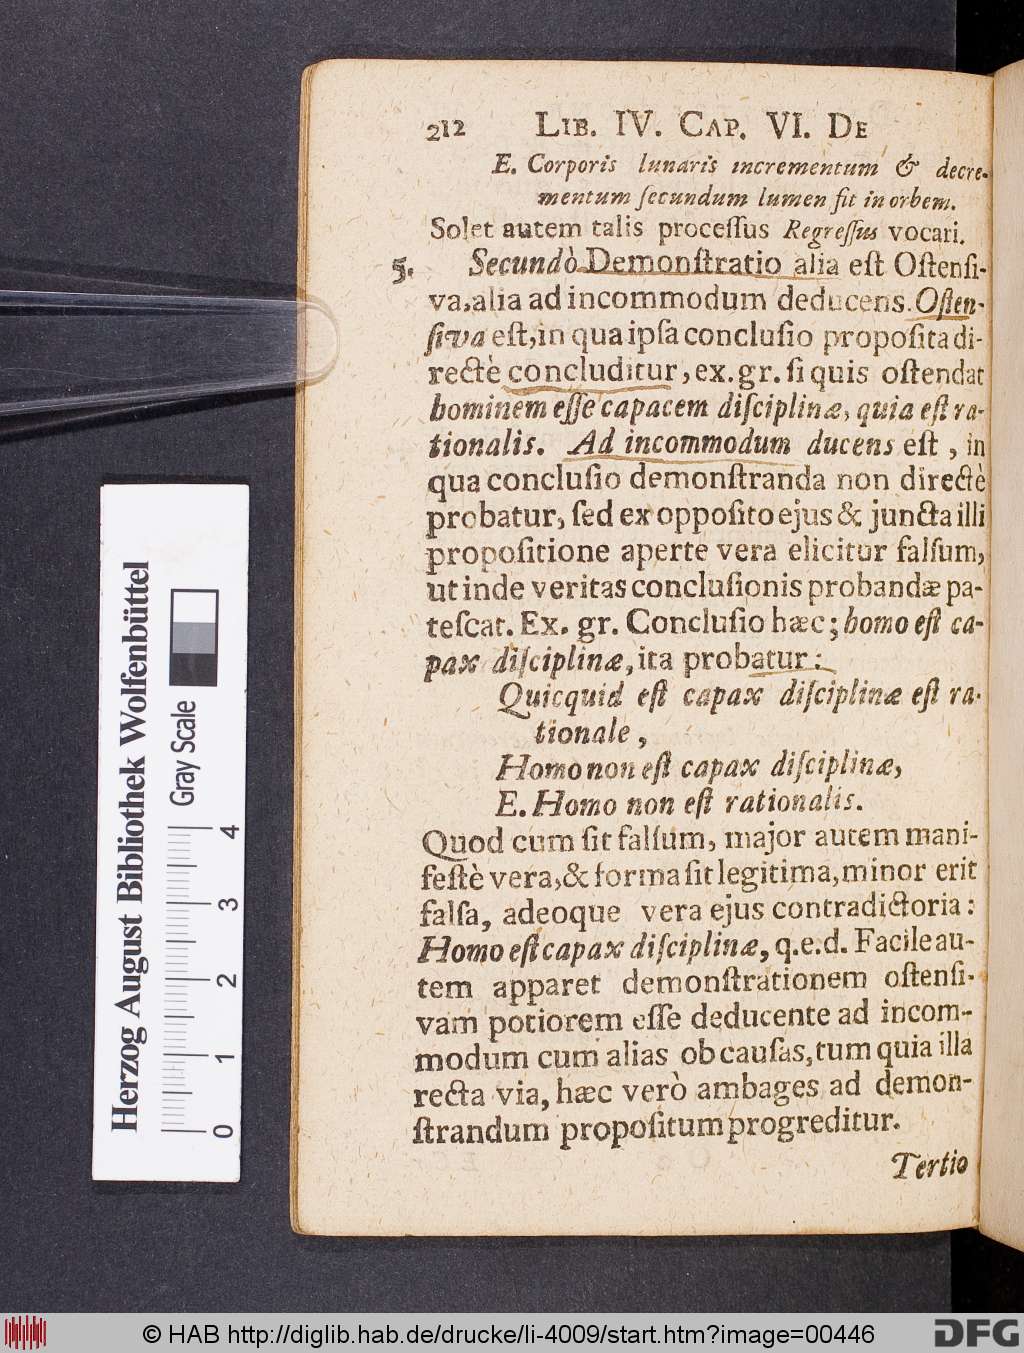 212 LIB. IV. CAP. VI. DE
E. Corporis lunaris incrementum & decre-
mentum ſecundum lumen fit in orbem.
Solet autem talis proceſſus Regreſſus vocari.
5. Secundò Demonſtratio alia eſt Oſtenſi-
va, alia ad incommodum deducens. Oſten-
ſiva eſt, in qua ipſa concluſio propoſita di-
rectè concluditur, ex. gr. ſi quis oſtendat
hominem eſſe capacem diſciplinæ, quia eſt ra-
tionalis. Ad incommodum ducens eſt, in
qua concluſio demonſtranda non directè
probatur, ſed ex oppoſito ejus & juncta illi
propoſitione aperte vera elicitur falſum,
ut inde veritas concluſionis probandæ pa-
teſcat. Ex. gr. Concluſio hæc; homo eſt ca-
pax diſciplinæ, ita probatur:
Quicquid eſt capax diſciplinæ eſt ra-
tionale,
Homo non eſt capax diſciplinæ,
E. Homo non eſt rationalis.
Quod cum ſit falſum, major autem mani-
feſtè vera, & forma ſit legitima, minor erit
falſa, adeoque vera ejus contradictoria:
Homo eſt capax diſciplinæ, q.e.d. Facile au-
tem apparet demonſtrationem oſtenſi-
vam potiorem eſſe deducente ad incom-
modum cum alias ob cauſas, tum quia illa
recta via, hæc verò ambages ad demon-
ſtrandum propoſitum progreditur.
Tertio
Herzog August Bibliothek Wolfenbüttel
Gray Scale
0 1 2 3 4
© HAB http://diglib.hab.de/drucke/li-4009/start.htm?image=00446
DFG